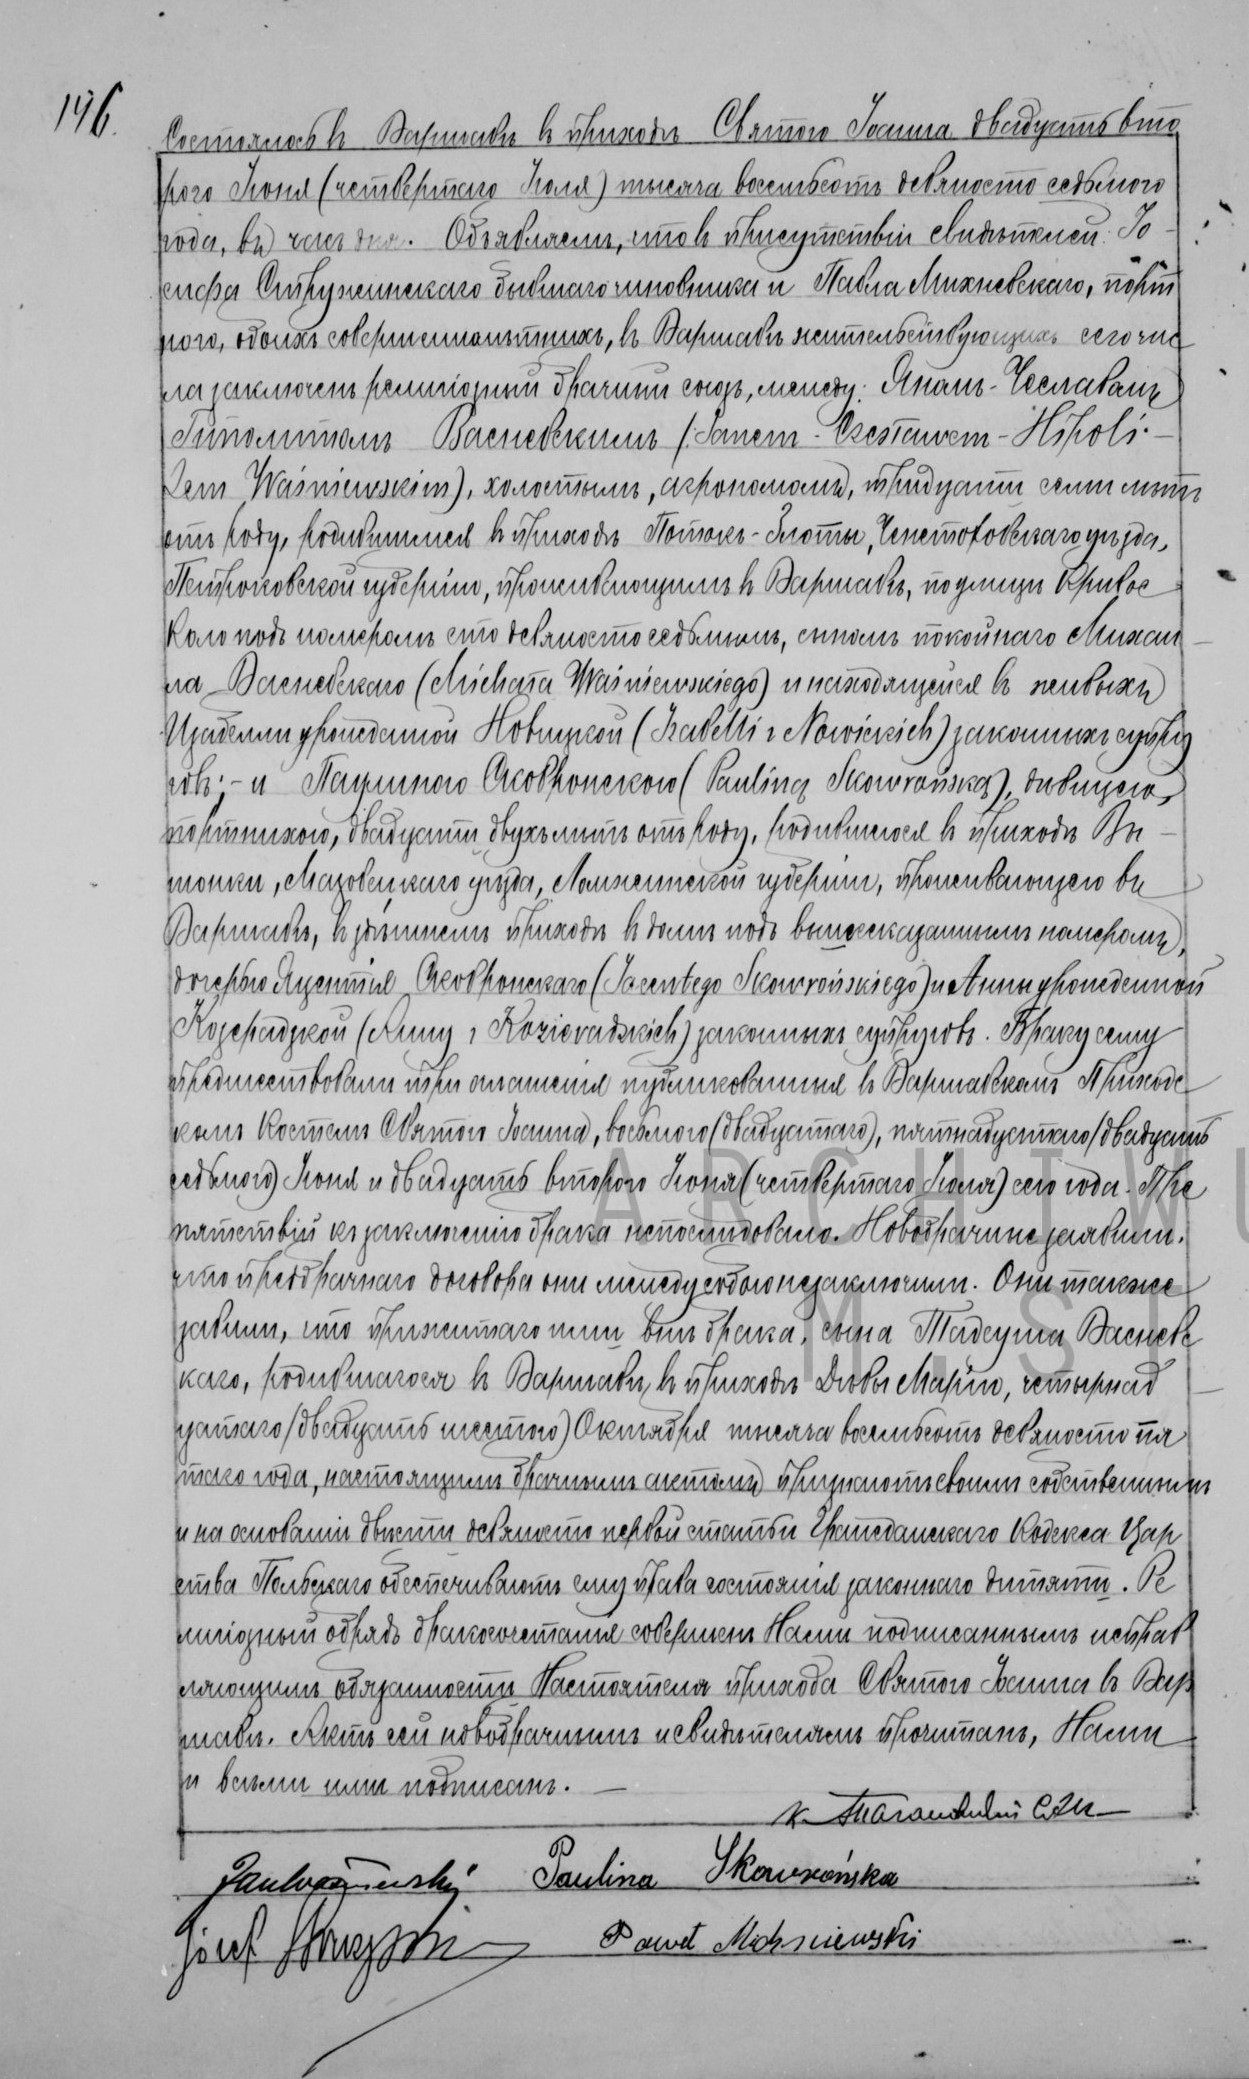 146.
Состоялось въ Варшавѣ въ приходѣ Святого Іоанна двадцать вто
рого Іюня (четвертаго Іюля) тысяча восемьсотъ девяносто седьмого
года, въ часъ дня. Объявляемъ, что въ присутствіи свидѣтелей: Іо-
сифа Стружинскаго бывшаго чиновника и Павла Михневскаго, порт
ного, обоихъ совершеннолѣтнихъ, въ Варшавѣ жительствующихъ сего чис
ла заключенъ религіозный брачный союзъ, между: Яномъ-Чеславомъ
Гиполитомъ Васневскимъ (Janem-Czesławem-Hipoli-
tem Waśniewskim), холостымъ, агрономомъ, тридцати семи лѣтъ
отъ роду, родившимся въ приходѣ Потокъ-Злоты, Ченстоховскаго уѣзда,
Петроковской губерніи, проживающимъ въ Варшавѣ, по улицѣ Кривое
Коло подъ номеромъ сто девяносто седьмымъ, сыномъ покойнаго Михаи-
ла Васневскаго (Michała Waśniewskiego) и находящейся въ живыхъ
Изабеллы урожденной Новицкой (Izabelli z Nowickich) законныхъ супру
говъ; - и Паулиною Сковронскою (Pauliną Skowrońską), дѣвицею,
портнихою, двадцати двухъ лѣтъ отъ роду, родившеюся въ приходѣ Вы-
шонки, Мазовецкаго уѣзда, Ломжинской губерніи, проживающею въ
Варшавѣ, въ здѣшнемъ приходѣ въ домѣ подъ вышесказаннымъ номеромъ,
дочерью Яцентія Сковронскаго (Jacentego Skowrońskiego) и Анны урожденной
Козерадзкой (Anny z Kozieradzkich) законныхъ супруговъ. Браку сему
предшествовали три оглашенія публикованныя въ Варшавскомъ Приходс
комъ Костелѣ Святого Іоанна, восьмого (двадцатаго), пятнадцатаго (двадцать
седьмого) Іюня и двадцать второго Іюня (четвертаго Іюля) сего года. Пре
пятствій къ заключенію брака непослѣдовало. Новобрачные заявили,
что предбрачнаго договора они между собою незаключили. Они также
заявили, что прижитаго ими внѣ брака, сына Тадеуша Васневс
каго, родившагося въ Варшавѣ, въ приходѣ Дѣвы Маріи, четырнад
цатаго (двадцать шестого) Октября тысяча восемьсотъ девяносто пя
таго года, настоящимъ брачнымъ актомъ признаютъ своимъ собственнымъ
и на основаніи двѣсти девяносто первой статьи Гражданскаго Кодекса Цар
ства Польскаго обеспечиваютъ ему права состоянія законнаго дитяти. Ре
лигіозный обрядъ бракосочетанія совершенъ Нами подписаннымъ исправ
ляющимъ обязанности Настоятеля прихода Святого Іоанна въ Вар
шавѣ. Актъ сей новобрачнымъ и свидѣтелямъ прочитанъ, Нами
и всѣми ими подписанъ. —
Jan Waśniewski Paulina Skowrońska
Józef Paweł Michniewski